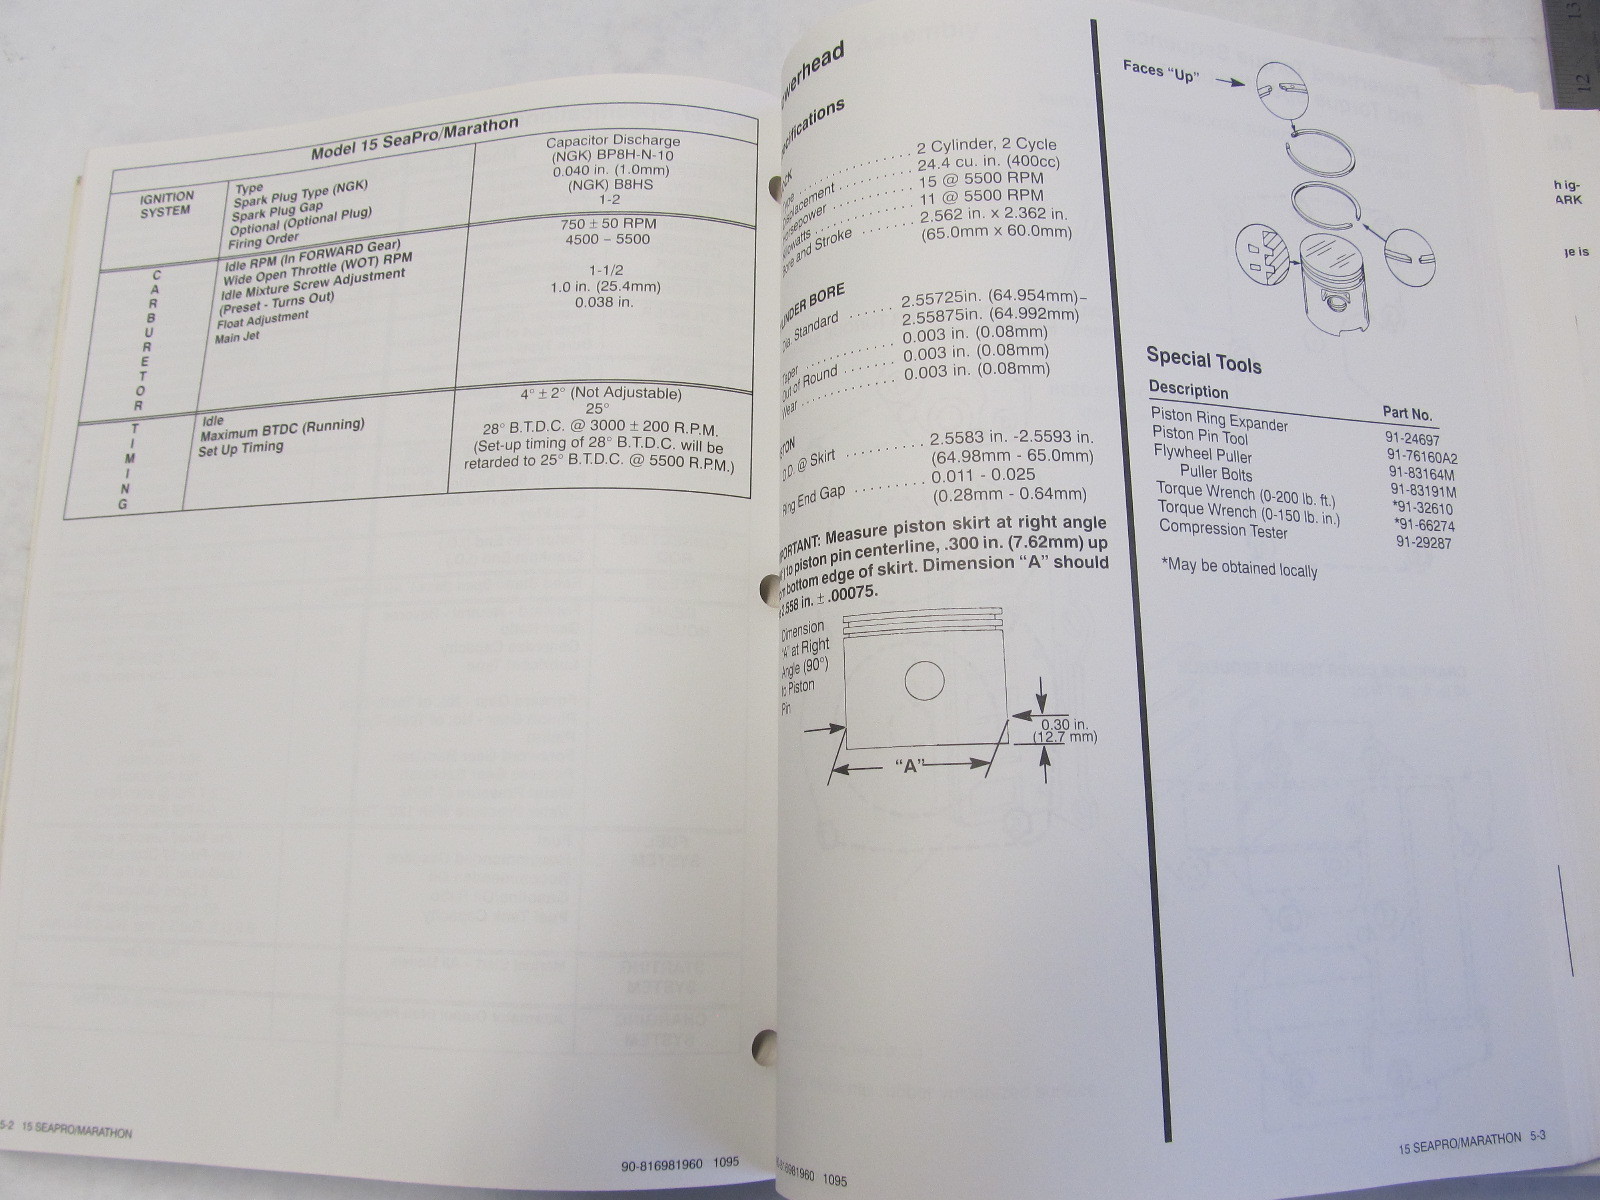 Model 15 SeaPro/Marathon
IGNITION
SYSTEM
Type
Spark Plug Type (NGK)
Spark Plug Gap
Optional (Optional Plug)
Firing Order
Capacitor Discharge
(NGK) BP8H-N-10
0.040 in. (1.0mm)
(NGK) B8HS
1-2
C
A
R
B
U
R
E
T
O
R
Idle RPM (In FORWARD Gear)
Wide Open Throttle (WOT) RPM
Idle Mixture Screw Adjustment
(Preset - Turns Out)
Float Adjustment
Main Jet
750 ± 50 RPM
4500 – 5500
1-1/2
1.0 in. (25.4mm)
0.038 in.
T
I
M
I
N
G
Idle
Maximum BTDC (Running)
Set Up Timing
4° ± 2° (Not Adjustable)
25°
28° B.T.D.C. @ 3000 ± 200 R.P.M.
(Set-up timing of 28° B.T.D.C. will be
retarded to 25° B.T.D.C. @ 5500 R.P.M.)
5-2 15 SEAPRO/MARATHON
90-816981960 1095
werhead
ecifications
CK
Type . . . . . . . . . . . . 2 Cylinder, 2 Cycle
Displacement . . . . . . . . . 24.4 cu. in. (400cc)
orsepower . . . . . . . . . . 15 @ 5500 RPM
ilowatts . . . . . . . . . . . 11 @ 5500 RPM
Bore and Stroke . . . . . . . 2.562 in. x 2.362 in.
(65.0mm x 60.0mm)
LINDER BORE
Dia. Standard . . . . . . 2.55725in. (64.954mm)–
2.55875in. (64.992mm)
Taper . . . . . . . . . . . . 0.003 in. (0.08mm)
Out of Round . . . . . . . 0.003 in. (0.08mm)
Wear . . . . . . . . . . . . 0.003 in. (0.08mm)
STON
O.D. @ Skirt . . . . . . . . . . 2.5583 in. -2.5593 in.
(64.98mm - 65.0mm)
Ring End Gap . . . . . . . . . 0.011 - 0.025
(0.28mm - 0.64mm)
PORTANT: Measure piston skirt at right angle
) to piston pin centerline, .300 in. (7.62mm) up
bottom edge of skirt. Dimension “A” should
2.558 in. ± .00075.
Dimension
“A” at Right
Angle (90°)
to Piston
Pin
0.30 in.
(12.7 mm)
“A”
816981960 1095
Faces “Up”
Special Tools
Description Part No.
Piston Ring Expander 91-24697
Piston Pin Tool 91-76160A2
Flywheel Puller 91-83164M
Puller Bolts 91-83191M
Torque Wrench (0-200 lb. ft.) *91-32610
Torque Wrench (0-150 lb. in.) *91-66274
Compression Tester 91-29287
*May be obtained locally
15 SEAPRO/MARATHON 5-3
h ig-
ARK
e is
13
12